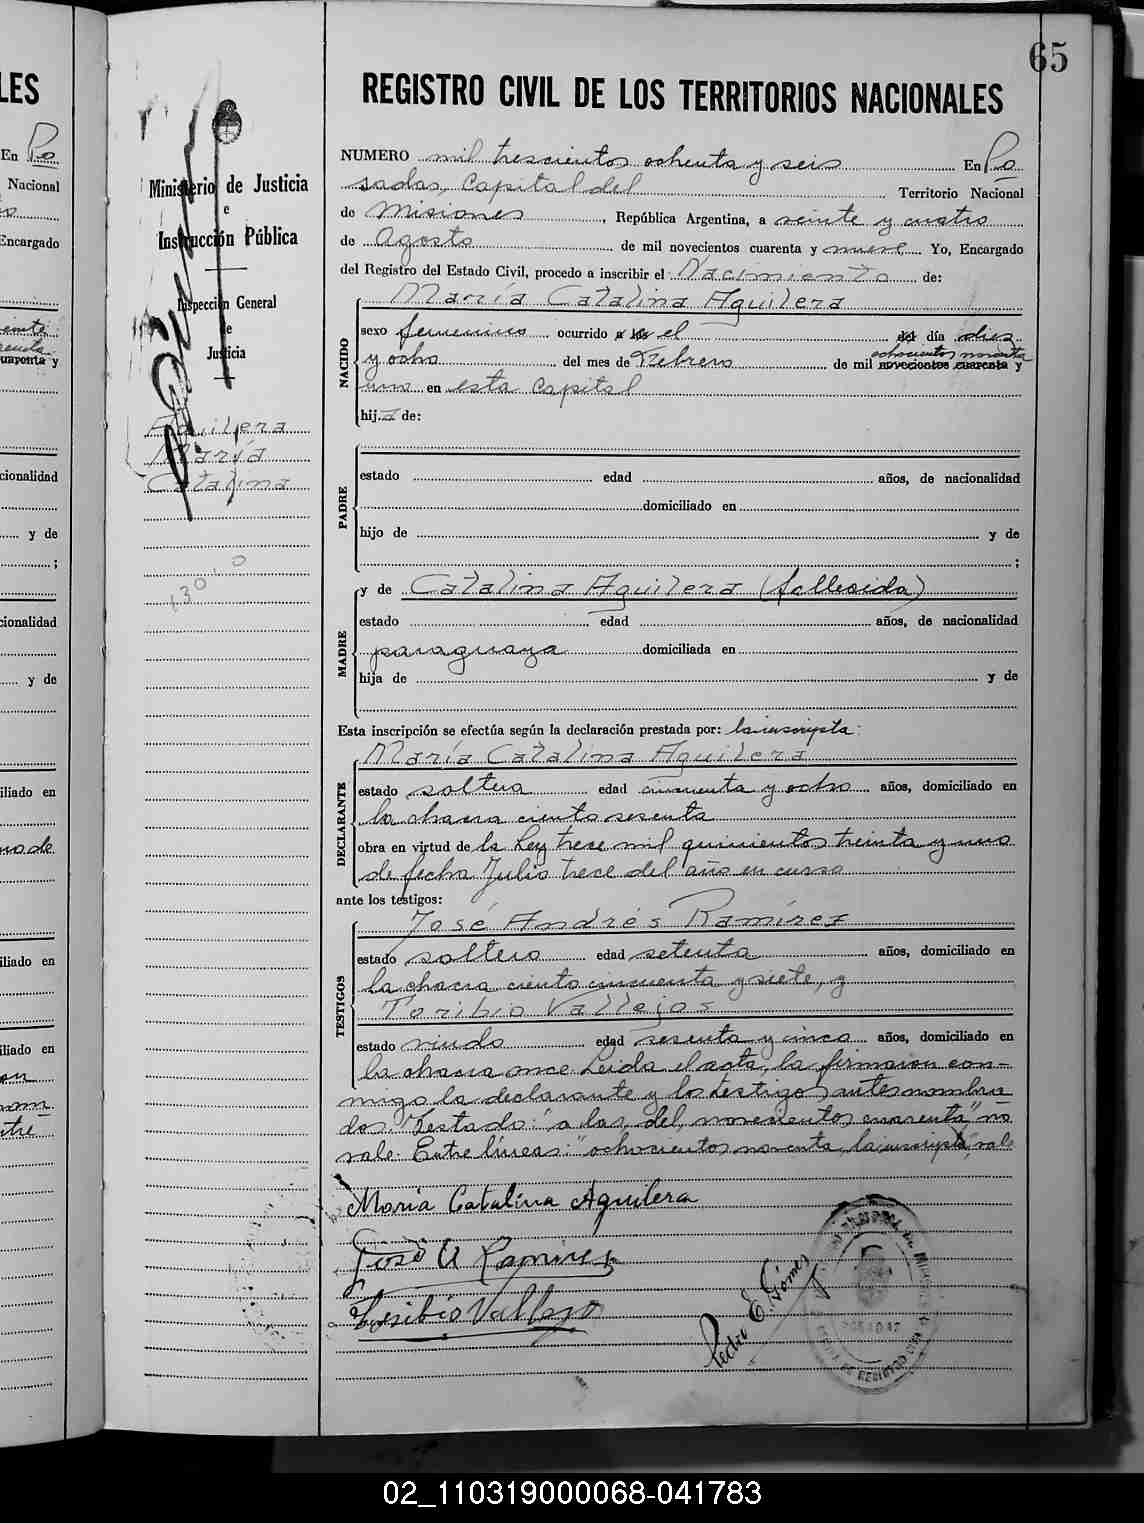 65
REGISTRO CIVIL DE LOS TERRITORIOS NACIONALES
Ministerio de Justicia
e
Instrucción Pública
Inspección General
de
Justicia
Aguilera
María
Catalina
NUMERO mil trescientos ochenta y seis En Po
sadas, Capital del Territorio Nacional
de Misiones, República Argentina, a veinte y cuatro
de Agosto de mil novecientos cuarenta y nueve Yo, Encargado
del Registro del Estado Civil, procedo a inscribir el Nacimiento de:
NACIDO
María Catalina Aguilera
sexo femenino ocurrido a las el del día diez
y ocho del mes de Febrero de mil novecientos cuarenta y
ochocientos noventa
uno en esta Capital
hija de:
PADRE
estado edad años, de nacionalidad
domiciliado en
hijo de y de
;
MADRE
y de Catalina Aguilera (fallecida)
estado edad años, de nacionalidad
paraguaya domiciliada en
hija de y de
Esta inscripción se efectúa según la declaración prestada por: la inscripta:
DECLARANTE
María Catalina Aguilera
estado soltera edad cincuenta y ocho años, domiciliado en
la chacra ciento sesenta
obra en virtud de la Ley trece mil quinientos treinta y uno
de fecha Julio trece del año en curso
ante los testigos:
TESTIGOS
José Andrés Ramírez
estado soltero edad setenta años, domiciliado en
la chacra ciento cincuenta y siete, y
Toribio Vallejos
estado viudo edad sesenta y cinco años, domiciliado en
la chacra once Leida el acta, la firmaron con-
migo la declarante y los testigos antes nombra
dos. Testado: "a las, del, novecientos cuarenta" no
vale. Entre líneas: "ochocientos noventa, la inscripta", vale
María Catalina Aguilera
José A Ramirez
Toribio Vallejo
Pedro E. Gómez
02_110319000068-041783